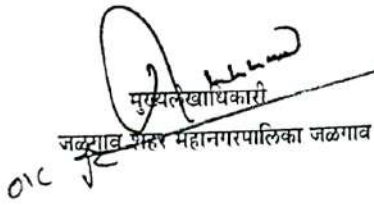 मुख्यलेखाधिकारी
जळगाव शहर महानगरपालिका जळगाव